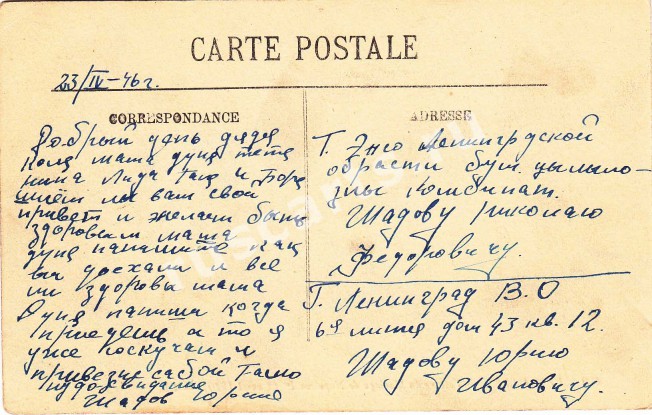 CARTE POSTALE
23/IV-46 г.
CORRESPONDANCE
Добрый день дядя
Коля маша дуня тётя
нина Лида Галя и Боря
шлём мы вам свой
привет и желаем быть
здоровыми маша
дуня напишите как
вы доехали и все
ли здоровы маша
дуня папиши когда
приедешь а то я
уже соскучился
привези с сабой Галю
до свидания
Шадов Юрий
ADRESSE
Г. Энсо Ленинградской
области бум. цылюло-
зный комбинат.
Шадову николаю
Федоровичу.
Г. Ленинград В.О
6я линия дом 43 кв. 12.
Шадову Юрию
Ивановичу.